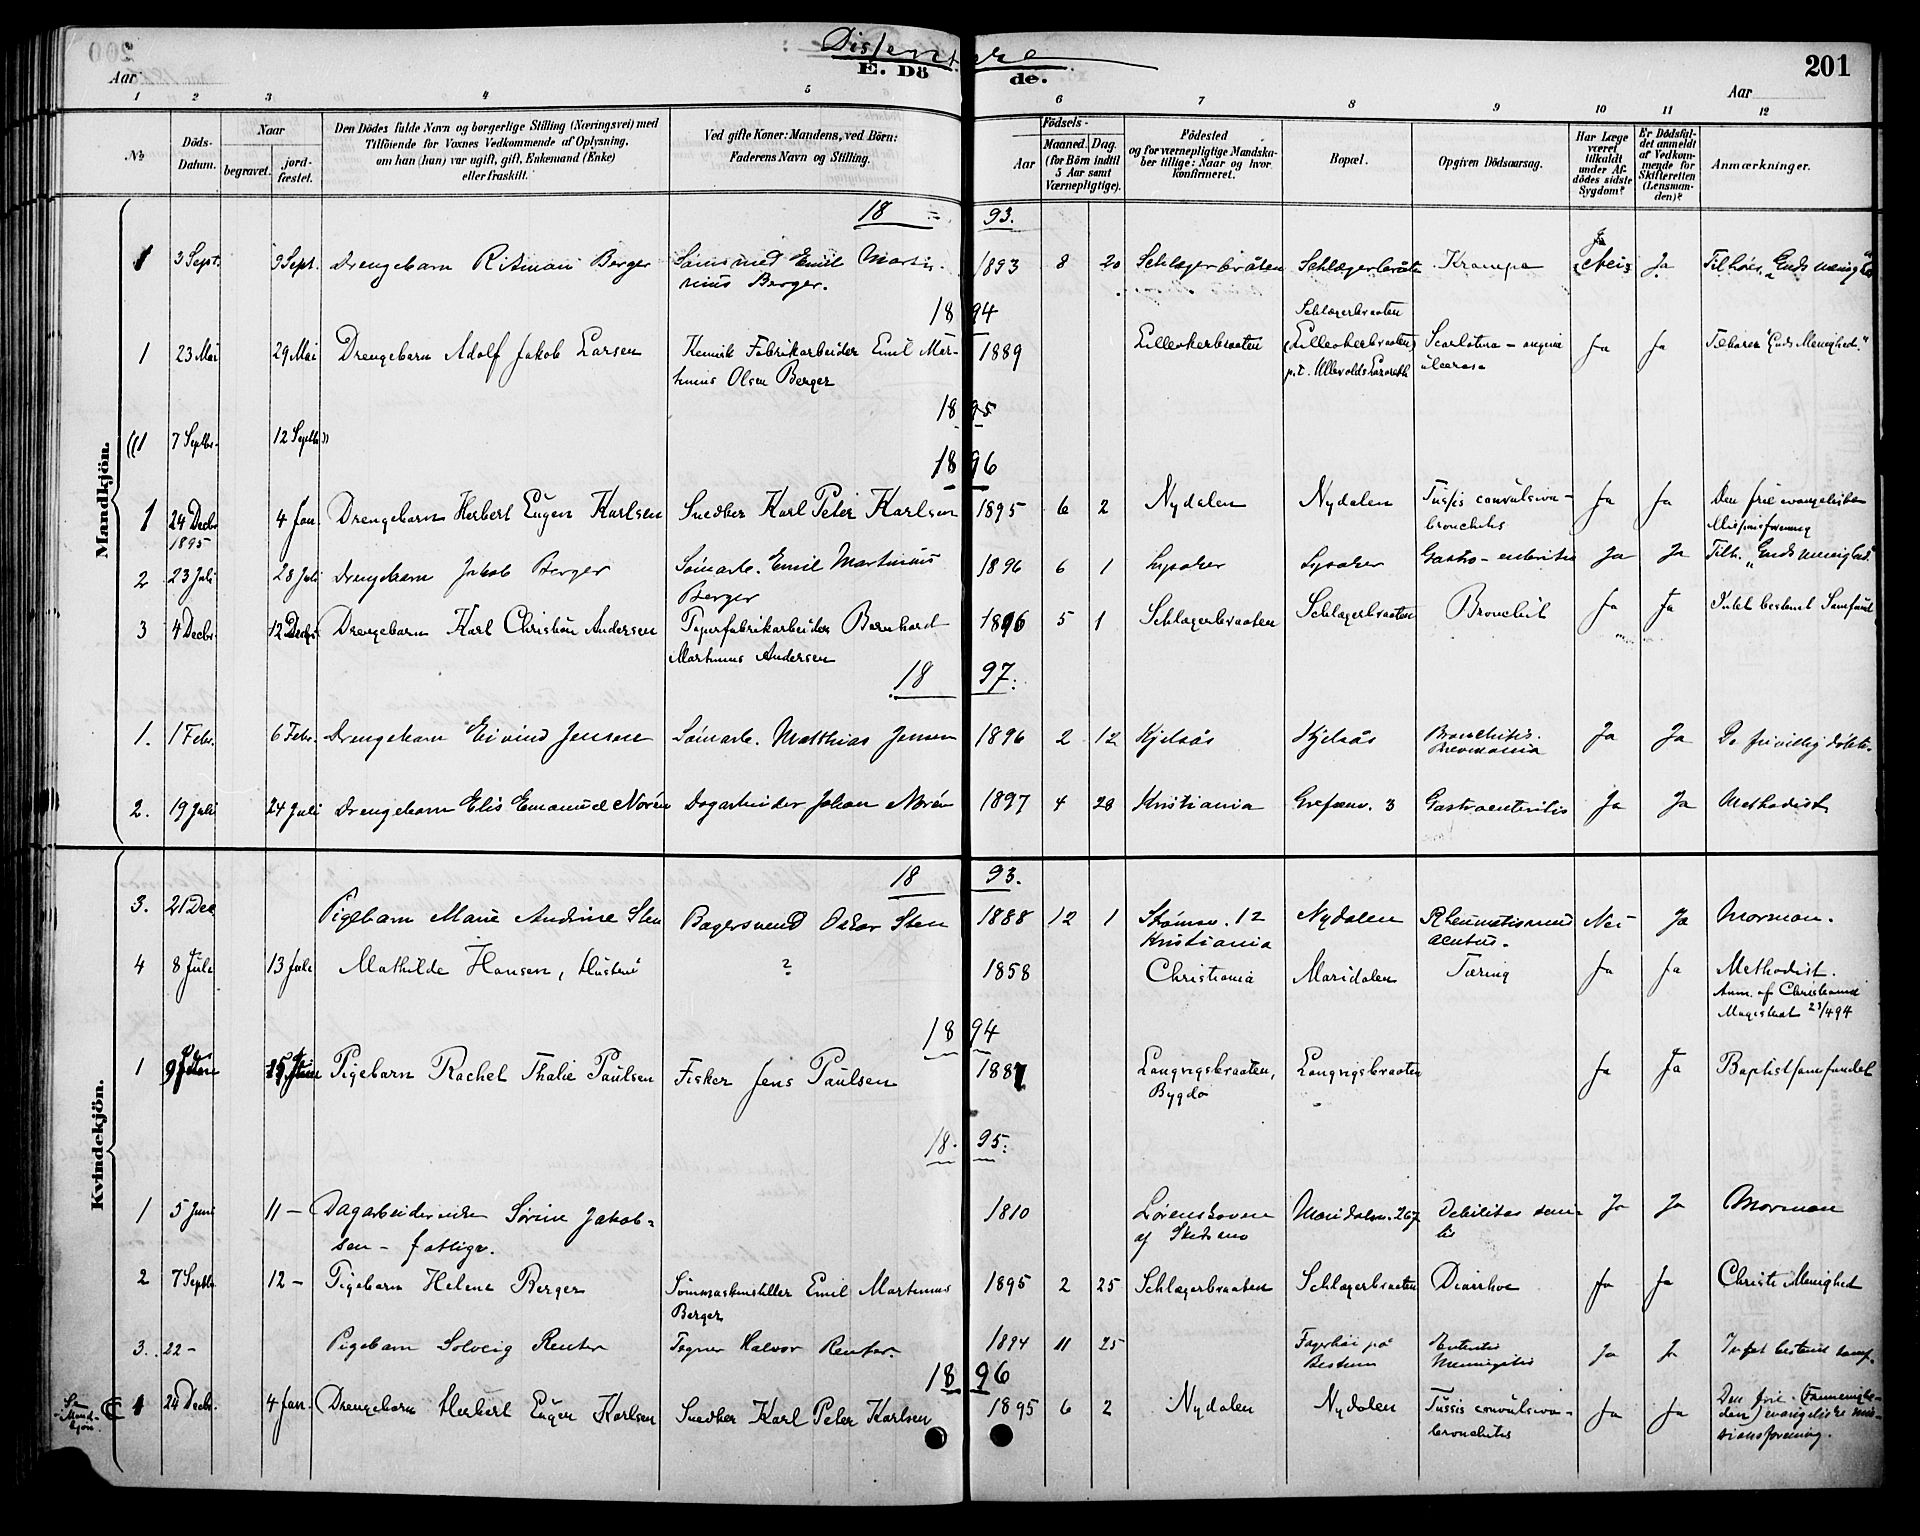 Dissentere
200
201
Aar
E. Dö
de.
Aar
1 2 3 4 5 6 7 8 9 10 11 12
No
Döds-Datum.
Naar
begravet.
jord-fæstet.
Den Dödes fulde Navn og borgerlige Stilling (Næringsvei) med
Tilföiende for Voxnes Vedkommende af Oplysning,
om han (hun) var ugift, gift, Enkemand (Enke)
eller fraskilt.
Ved gifte Koner: Mandens, ved Börn:
Faderens Navn og Stilling.
Födsels-
Aar
Maaned. Dag.
(for Börn indtil
5 Aar samt
Værnepligtige).
Födested
og for værnepligtige Mandska-
ber tillige: Naar og hvor
konfirmeret.
Bopæl.
Opgiven Dödsaarsag.
Har Læge
været
tilkaldt
under Af-
dödes sidste
Sygdom?
Er Dödsfal-
det anmeldt
af Vedkom-
mende for
Skifteretten
(Lensman-
den)?
Anmærkninger.
Mandkjön.
18 93.
1 3 Sept. 9 Sept. Drengebarn Berger Emil Martinius Berger. 1893 8 20 Schlægerbråten Schlægerbråten Krampe Ja Nei Ja Tilhører "Guds menighed"
18 94
1 23 Mai 29 Mai Drengebarn Adolf Jakob Larsen Kemisk Fabrikarbeider Emil Mar-
thinius Olsen Berger 1889 Lilleakerbraaten Schlægerbraaten
(Lilleakerbraaten)
p.t. Ullevolds Lazareth Scarlatina - angina
ulcerosa Ja Ja "Guds Menighed."
18 95
((1 7 Septbr. 12 Septb))
18 96
1 24 Decbr 1895 4 Jan. Drengebarn Herbert Eugen Karlsen Snedker Karl Peter Karlsen 1895 6 2 Nydalen Nydalen Tussis convulsiva -
bronchitis Ja Ja Den frie evangeliske
Missionsforening
2 23 Juli 28 Juli Drengebarn Jakob Berger Sömarb. Emil Martinius
Berger 1896 6 1 Lysaker Lysaker Gastro-enteritis Ja Ja Tilh. "Guds menighed"
3 4 Decbr 12 Decbr Drengebarn Karl Christian Andersen Papirfabrikarbeider Bernhard
Martinius Andersen 1896 5 1 Schlægerbraaten Schlægerbraaten Bronchit Ja Ja Intet bestemt Samfund
18 97.
1. 1 Febr. 6 Febr. Drengebarn Eivind Jensen Sömarb. Matthias Jensen 1896 2 12 Kjelsås Kjelsås Bronchitis. Ja Ja De frivillig döbte.
2. 19 Juli 24 Juli Drengebarn Elis Emanuel Norén Dagarbeider Johan Norén 1897 4 28 Kristiania Grefsenv. 3 Gastroenteritis Ja Ja Methodist
Kvindekjön.
18 93.
3. 21 Dec Pigebarn Marie Andrine Sten Bagersvend Oskar Sten 1888 12 1 Strömsv. 12
Kristiania Nydalen Rheumatismus
acutus. Nei Ja Mormon.
4 8 Juli 13 Juli Mathilde Hansen, Hustru ? 1858 Christiania Maridalen Tæring Ja Ja Methodist.
Anm. af Christiania
Magistrat 23/4 94
18 94
1 Pigebarn Rachel Thalie Paulsen Fisker Jens Paulsen 1887 Langvigsbraaten,
Bygdö Langvigsbraaten Ja Ja Baptistsamfundet
18 95.
1 5 Juni 11 - Dagarbeiderenke Sörine Jakob-
sen - fattige. 1810 Lörenskoven
af Skedsmo Maridalsv. 267 Debilitas seni-
lis Ja Ja Mormon
2 7 Septbr 12 - Pigebarn Helene Berger Sömmaskinstiller Emil Martinius
Berger 1895 2 25 Schlægerbraaten Schlægerbraaten Diarrhoe Ja Ja Christi Menighed
3. 22 - Pigebarn Solveig Renter Tegner Halvor Renter. 1894 11 25 Fagerhöi på
Bestum Enteritis
Meningitis Ja Ja Intet bestemt samf.
18 96
Se
Mand-
kjön 1 24 Decbr. 4 Jan. Drengebarn Herbert Eugen Karlsen Snedker Karl Peter Karlsen 1895 6 2 Nydalen Nydalen Tussis convulsiva -
bronchitis Ja Ja Den frie
evangeliske mis-
sionsforening.